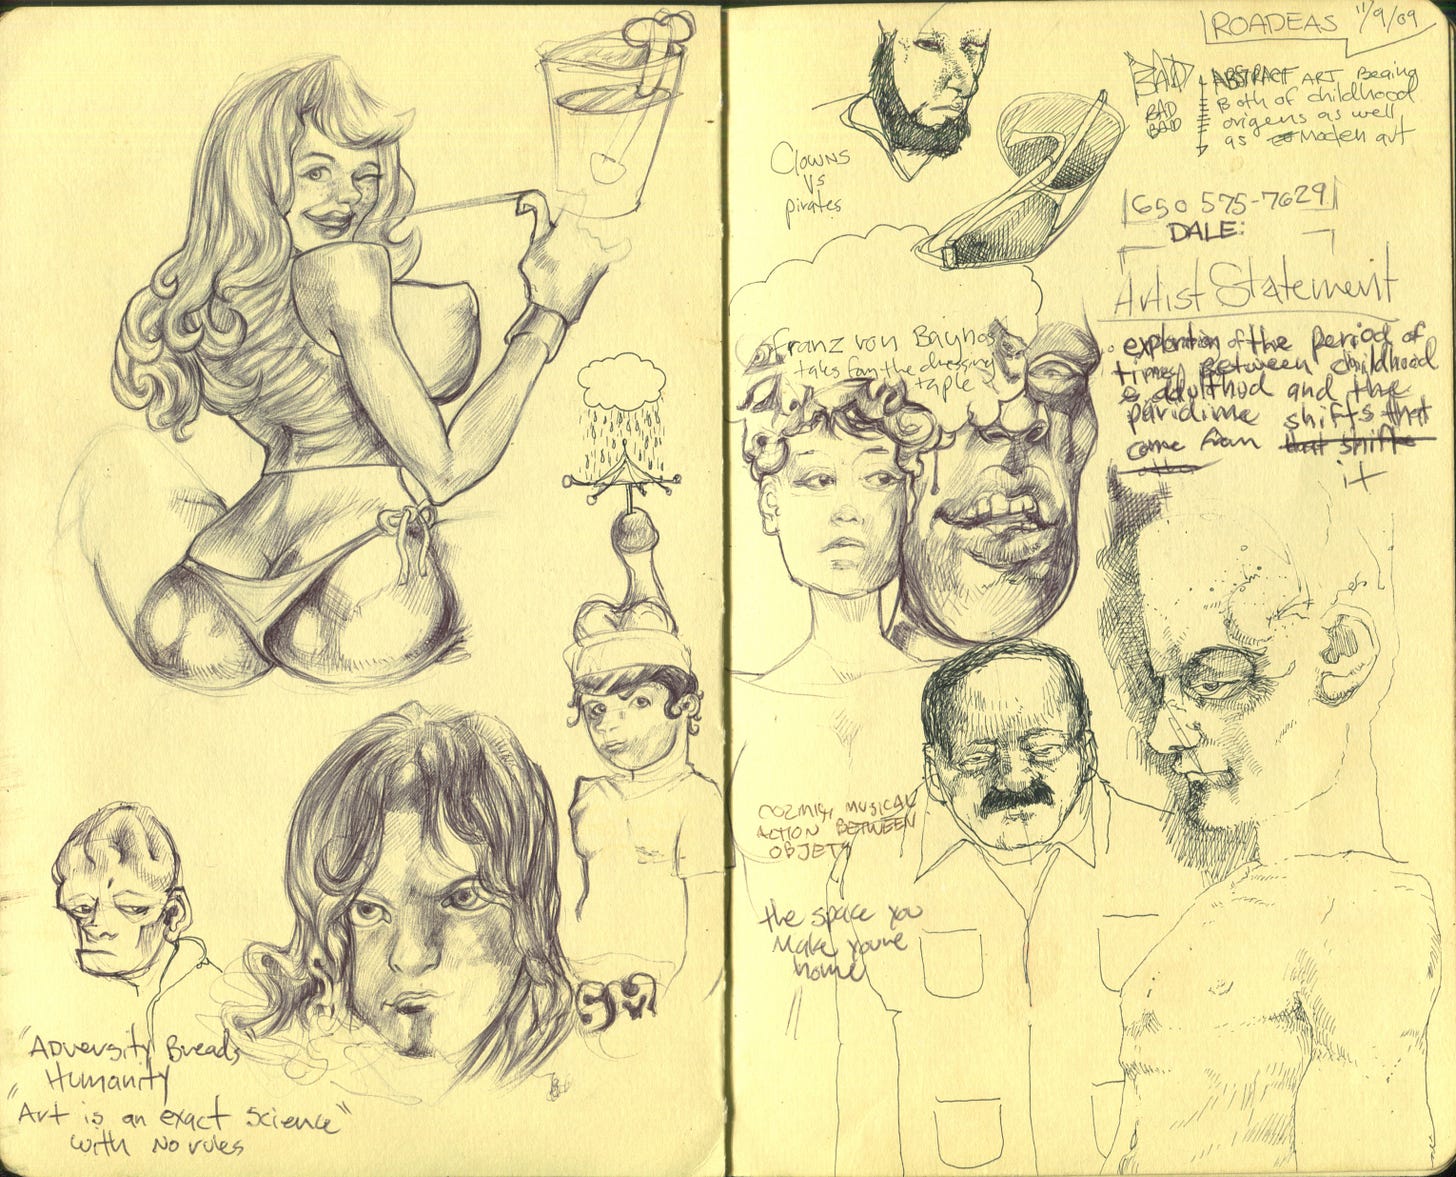 "Adversity Breads"
Humanity
"Art is an exact science"
with No rules
ROADEAS 11/9/09
BAD
BAD
BAD
ABSTRACT ART Being
Both of childhood
origens as well
as Moden art
Clowns
vs
pirates
650 575-7629
DALE:
Artist Statement
exploration of the period of
time Between childhood
& adulthod and the
paridime shifts that
come from that shift
it
Franz von Bayhos
taks fom the dressing
taple
COZMIC MUSICAL
ACTION BETWEEN
OBJETS
the space you
Make youre
home